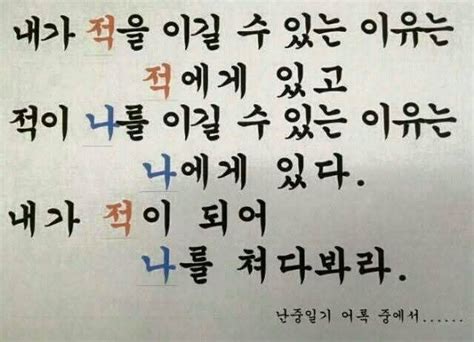 내가 적을 이길 수 있는 이유는
적에게 있고
적이 나를 이길 수 있는 이유는
나에게 있다.
내가 적이 되어
나를 쳐다봐라.
난중일기 어록 중에서......